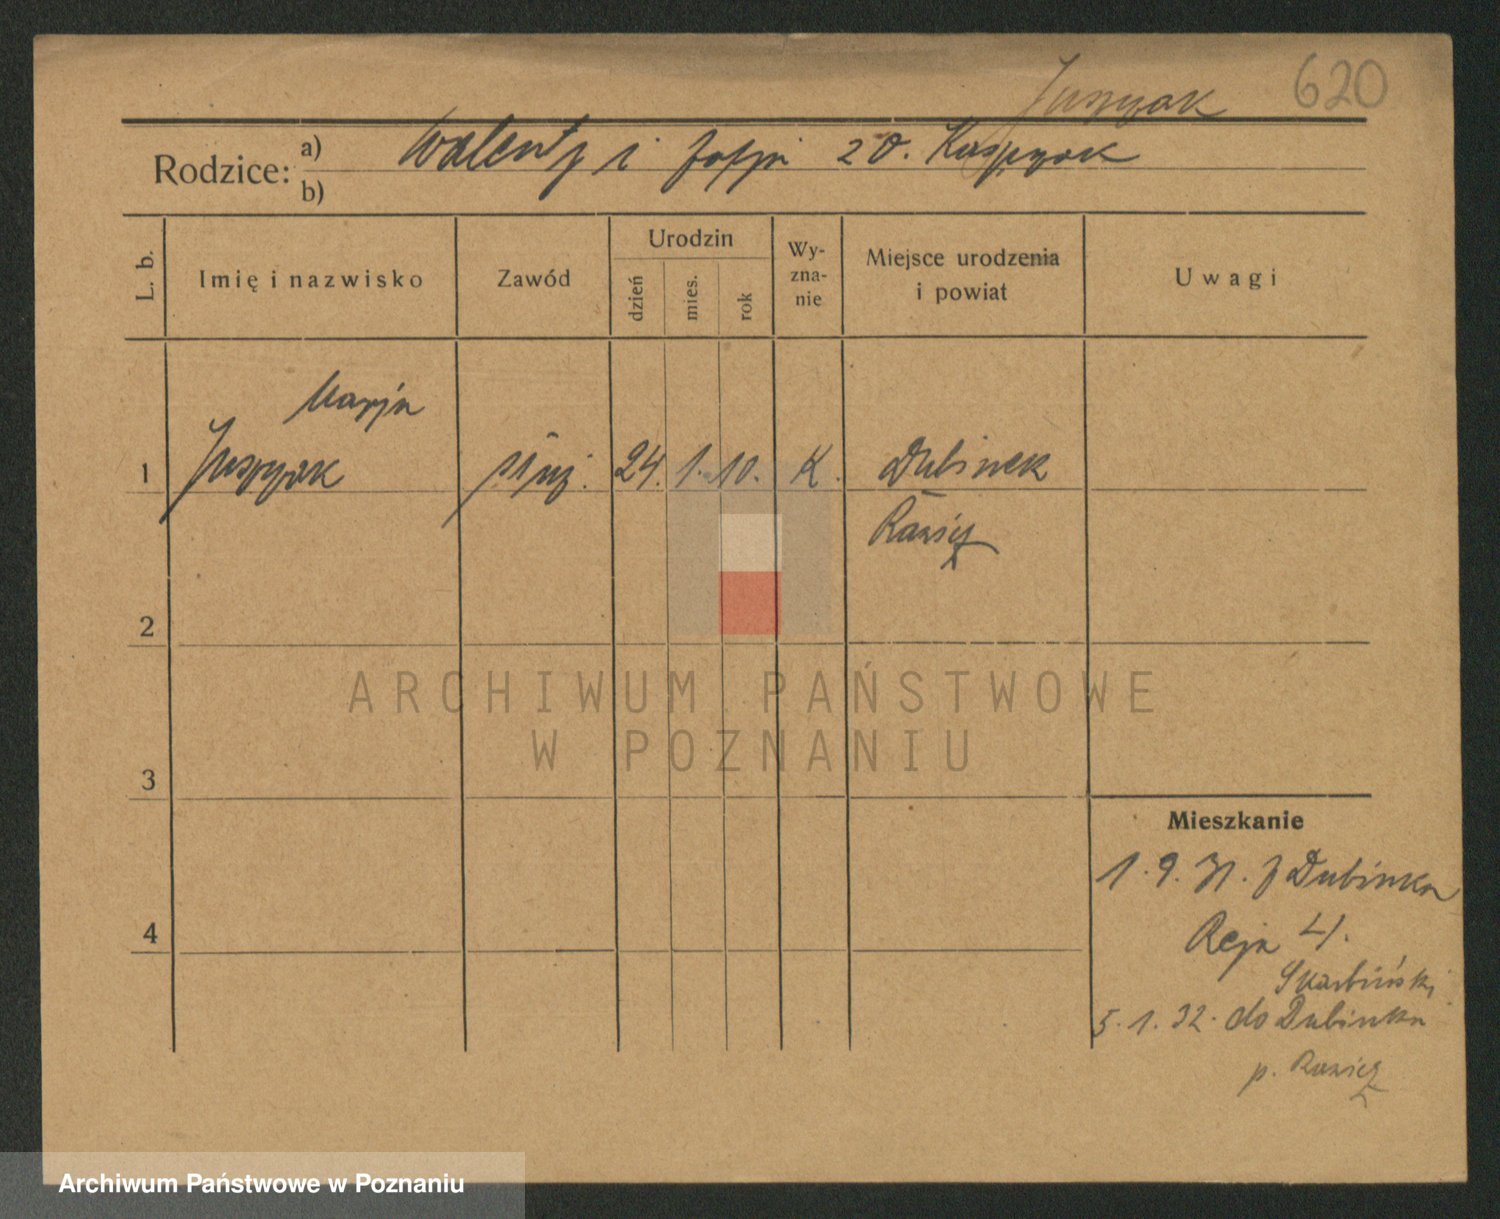 Juszczak 620
Rodzice: a) Walenty i Zofja zd. Kasprzak
b)
L. b. Imię i nazwisko Zawód Urodzin dzień mies. rok Wy-zna-nie Miejsce urodzenia i powiat Uwagi
Marja
1 Juszczak służ. 24. 1. 10. K. Dubinek
Rawicz
2
3
4
Mieszkanie
1. 9. 31. z Dubinka
Reja 4.
Skarbiński
5. 1. 32. do Dubinka
p. Rawicz
ARCHIWUM PAŃSTWOWE
W POZNANIU
Archiwum Państwowe w Poznaniu